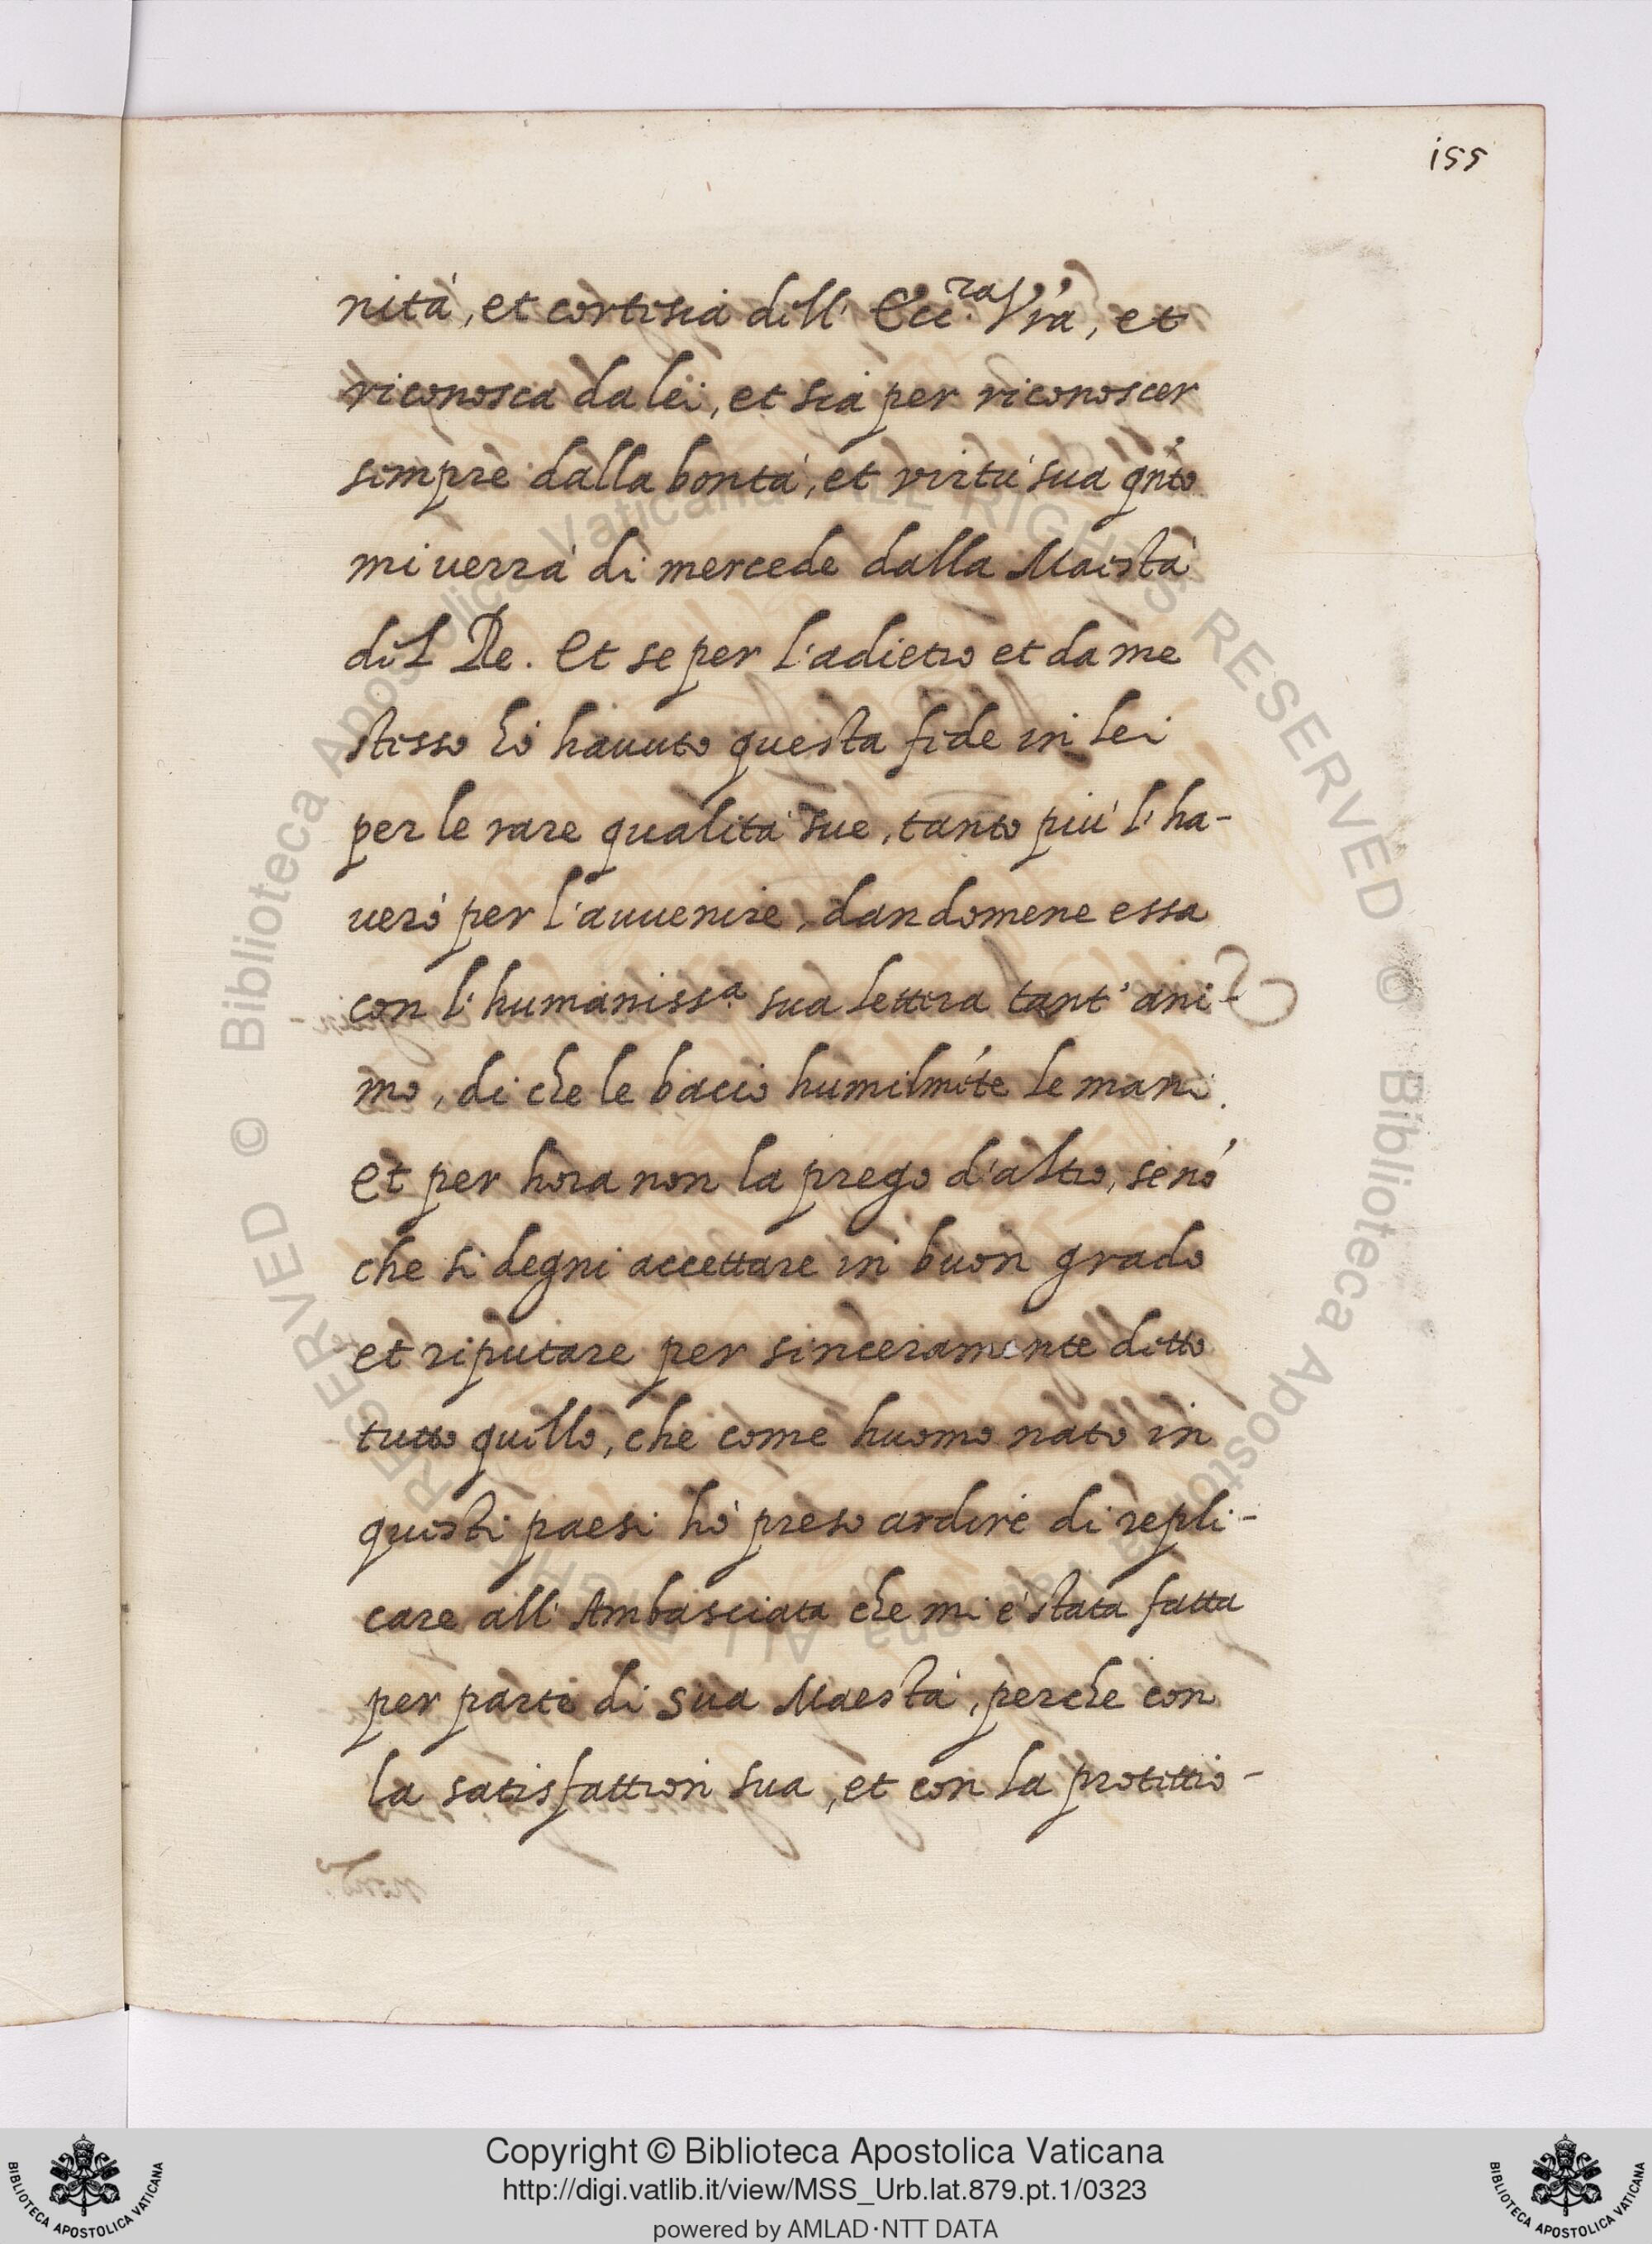 155
nità, et cortesia dell' Ecc.za V'ra, et
riconosca da lei, et sia per riconoscer
sempre dalla bontà, et virtù sua qnto
mi uerrà di mercede dalla Maestà
del Re. Et se per l'adietro et da me
stesso hò hauuto questa fede in lei
per le rare qualità sue, tanto più l'ha-
uerò per l'auuenire, dandomene essa
con l'humaniss.a sua lettera tant'ani-
mo, di che le bacio humilmẽte le mani.
Et per hora non la prego d'altro, se nõ
che si degni accettare in buon grado
et riputare per sinceramente detto
tutto quello, che come huomo nato in
questi paesi hò preso ardire di repli-
care all'Ambasciata che mi è stata fatta
per parte di sua Maestà, perche con
la satisfattion sua, et con la protettio-
© Biblioteca Apostolica Vaticana ALL RIGHTS RESERVED © Biblioteca Apostolica Vaticana ALL RIGHTS RESERVED
BIBLIOTECA APOSTOLICA VATICANA
Copyright © Biblioteca Apostolica Vaticana
http://digi.vatlib.it/view/MSS_Urb.lat.879.pt.1/0323
powered by AMLAD·NTT DATA
BIBLIOTECA APOSTOLICA VATICANA